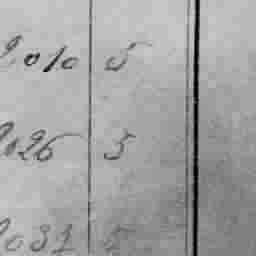 2010 5
2026 5
2031 5